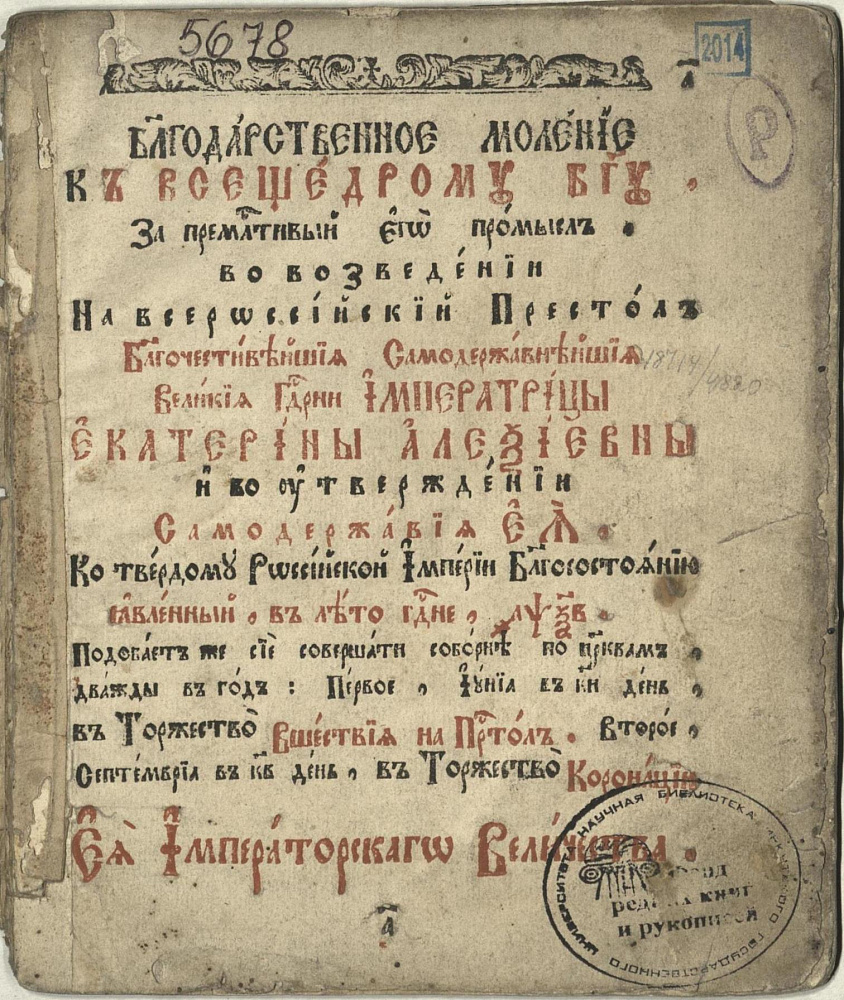 5678
2014
а҃
Р
Бл҃года́рственное моле́нїе
Къ всеще́дрому бг҃ꙋ ,
За прему́дтивый є҆гѡ̀ про́мыслъ .
во возведе́нїи
На всерѡссі́йскїй Престо́лъ
Бл҃гочести́вѣйшїѧ Самодержа́внѣйшїѧ
Вели́кїѧ Гдⷭ҇рни І҆мператрі́цы
Є҆катері́ны А҆леѯі́евны
и҆ во ᲂу҆твержде́нїи
Самодержа́вїѧ Є҆Ѧ̀ .
Ко твє́рдому Рѡссі́йской І҆мпе́рїи Бл҃госостоѧ́нїю
ꙗ҆вле́нный , въ лѣ́то гдⷭ҇не , аѱѯв
Подоба́етъ же сїѐ соверша́ти собо́рнѣ по цр҃квамъ ,
два́жды въ го́дъ : Пе́рвое , І҆ꙋ́нїа въ кн҃ де́нь ,
въ Торжество̀ Вше́ствїѧ на Прⷭ҇то́лъ . Второ́е ,
Септе́мврїа въ кв҃ де́нь , въ Торжество̀ Корона́цїи
Є҆ѧ̀ І҆мпера́торскагѡ Вели́чества .
а҃
НАУЧНАЯ БИБЛИОТЕКА
ГОСУДАРСТВЕННОГО УНИВЕРСИТЕТА
Фонд
редких книг
и рукописей